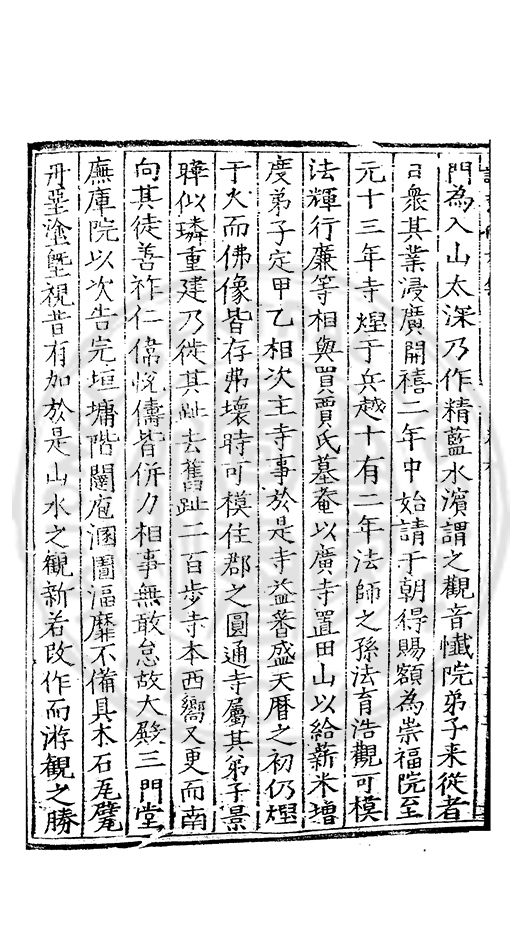 門為入山太深乃作精藍水濱謂之觀音懺院弟子来從者
日衆其業浸廣開禧二年中始請于朝得賜額為崇福院至
元十三年寺煋于兵越十有二年法師之孫法育浩觀可模
法輝行廉等相與買賈氏墓菴以廣寺置田山以給薪米增
度弟子定甲乙相次主寺事於是寺益蕃盛天曆之初仍煋
于火而佛像皆存弗壞時可模住郡之圓通寺屬其弟子景
曄似璘重建乃徙其趾去舊趾二百步寺本西嚮又更而南
向其徒善祚仁偉悅儔皆併力相事無敢怠故大殿三門堂
廡庫院以次告完垣墉階闥庖湢圊溷靡不備具木石瓦甓
丹堊塗塈視昔有加於是山水之観新若改作而游観之勝